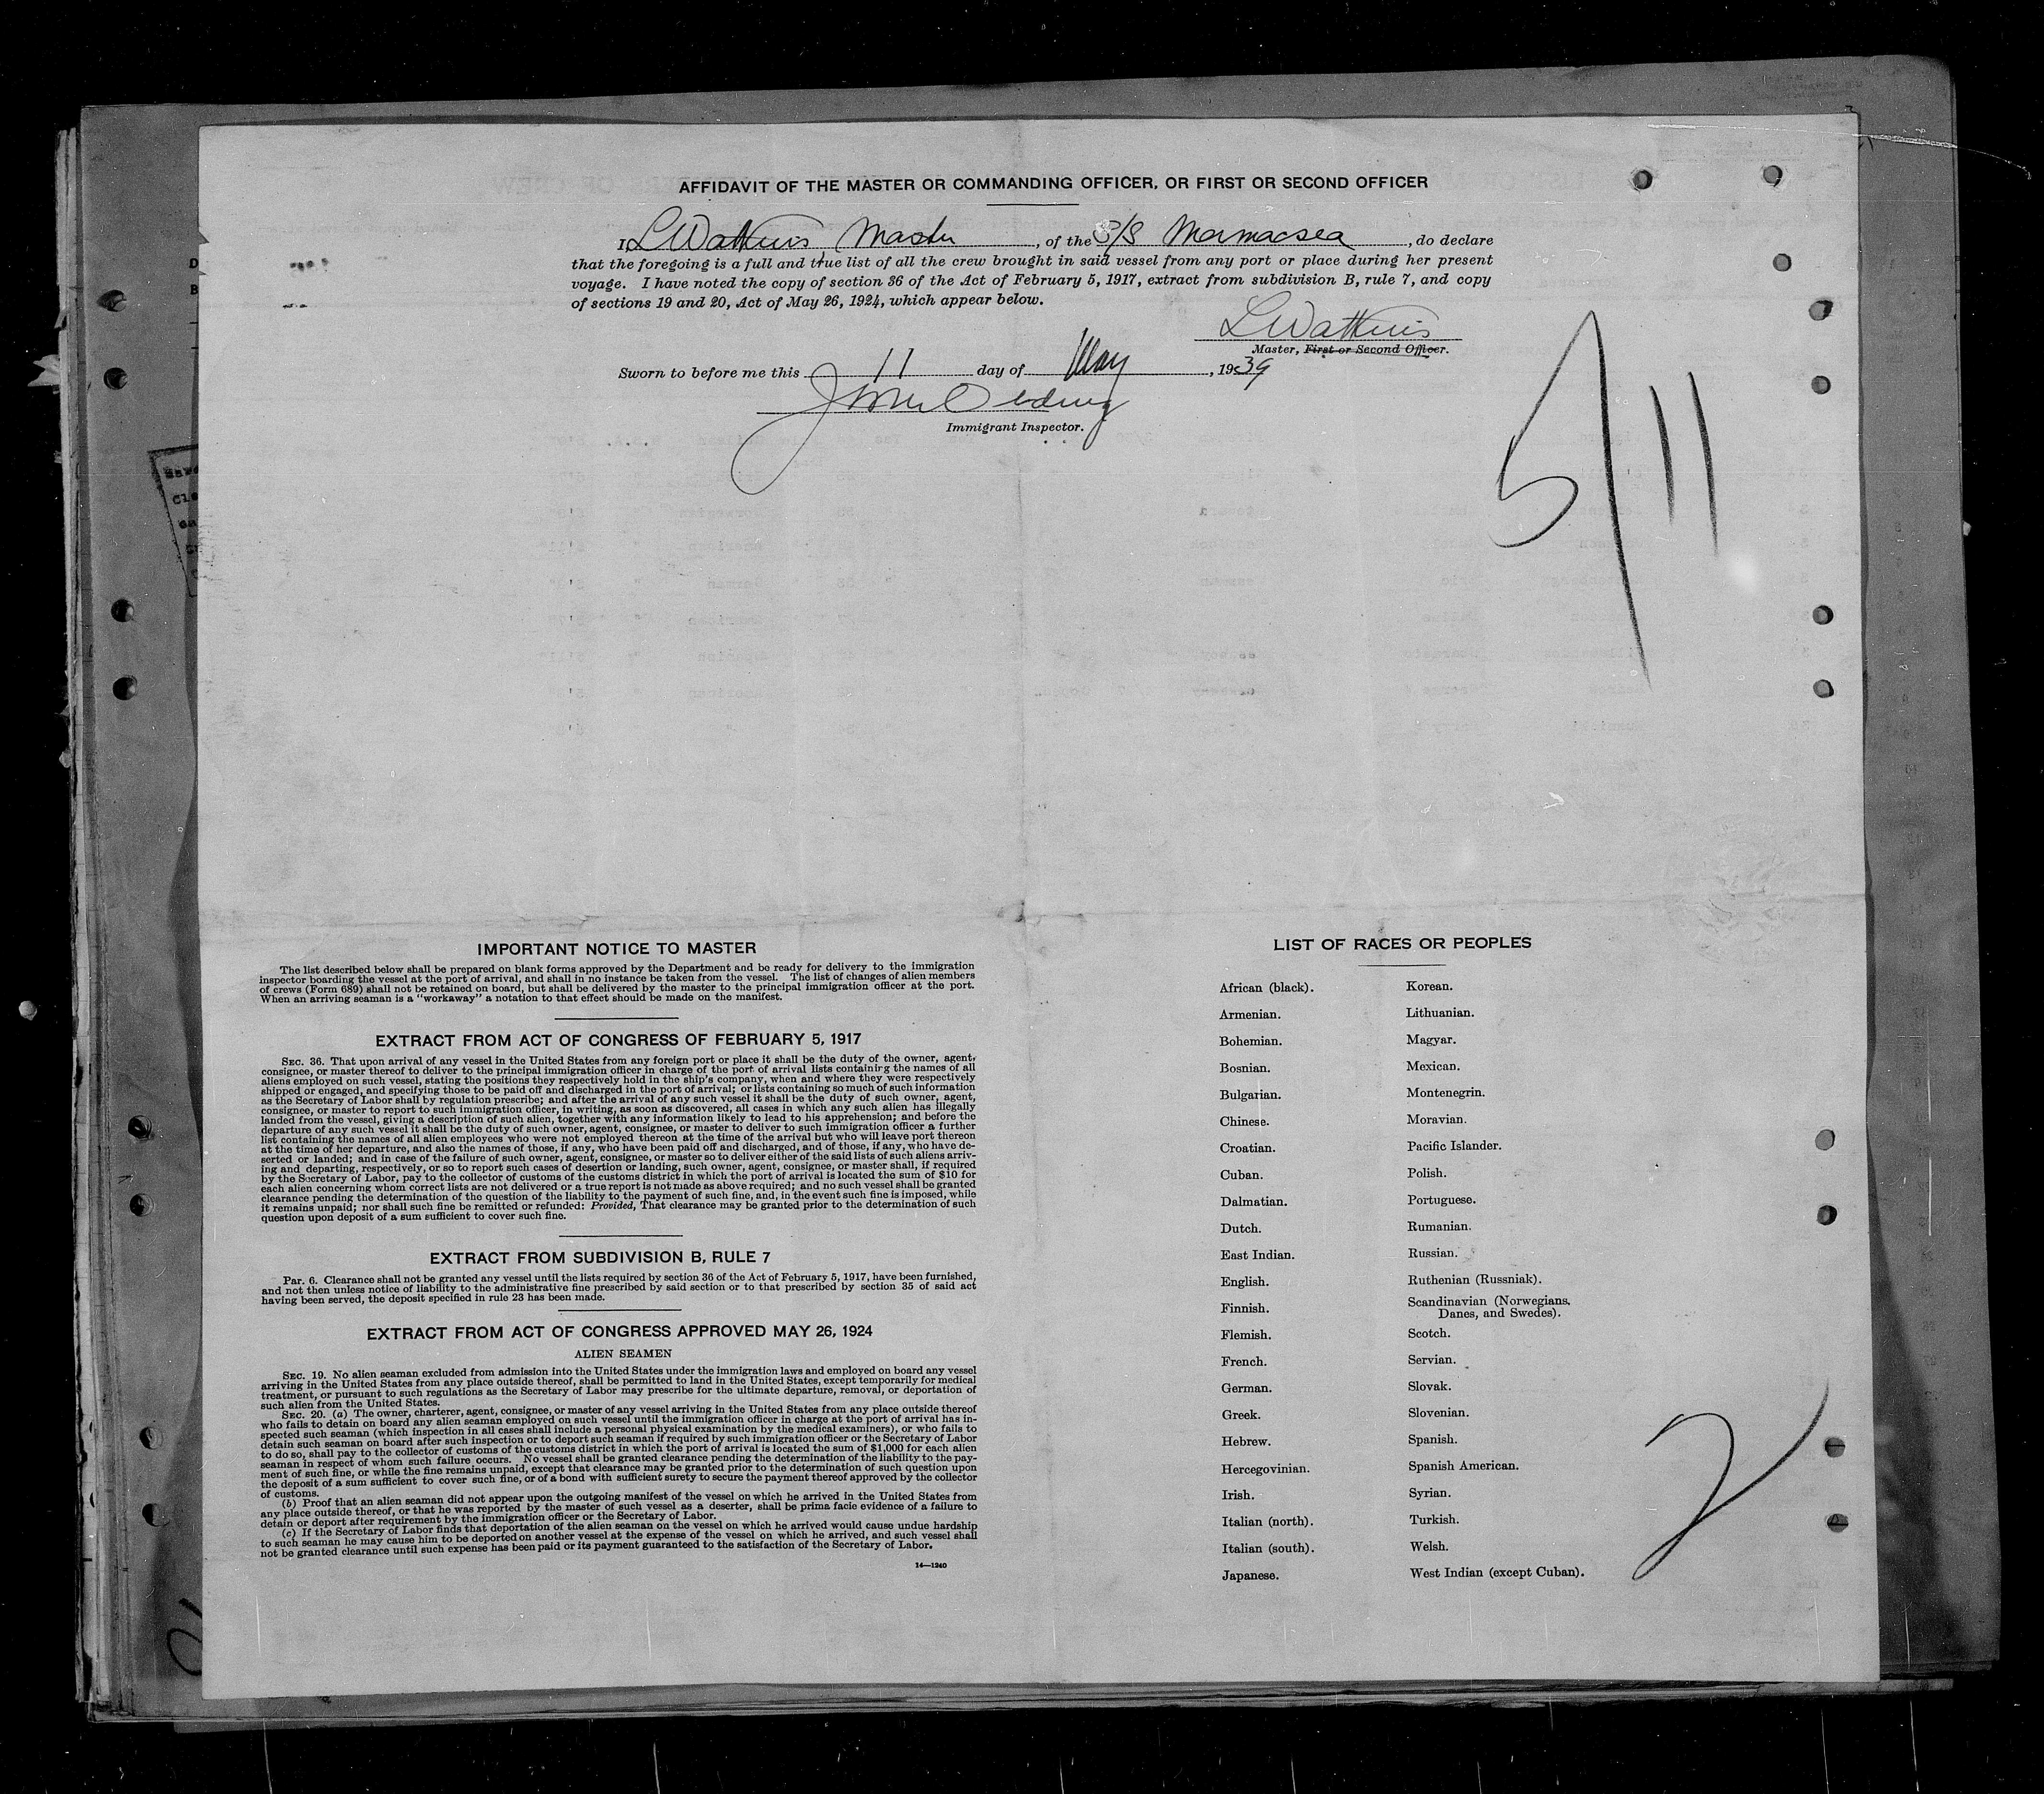 AFFIDAVIT OF THE MASTER OR COMMANDING OFFICER, OR FIRST OR SECOND OFFICER
I, L Watkins Master, of the S/S Mormacsea, do declare
that the foregoing is a full and true list of all the crew brought in said vessel from any port or place during her present
voyage. I have noted the copy of section 36 of the Act of February 5, 1917, extract from subdivision B, rule 7, and copy
of sections 19 and 20, Act of May 26, 1924, which appear below.
L Watkins
Master, First or Second Officer.
Sworn to before me this 11 day of May, 1939
Immigrant Inspector.
5/11
IMPORTANT NOTICE TO MASTER
The list described below shall be prepared on blank forms approved by the Department and be ready for delivery to the immigration
inspector boarding the vessel at the port of arrival, and shall in no instance be taken from the vessel. The list of changes of alien members
of crews (Form 689) shall not be retained on board, but shall be delivered by the master to the principal immigration officer at the port.
When an arriving seaman is a "workaway" a notation to that effect should be made on the manifest.
EXTRACT FROM ACT OF CONGRESS OF FEBRUARY 5, 1917
SEC. 36. That upon arrival of any vessel in the United States from any foreign port or place it shall be the duty of the owner, agent,
consignee, or master thereof to deliver to the principal immigration officer in charge of the port of arrival lists containing the names of all
aliens employed on such vessel, stating the positions they respectively hold in the ship's company, when and where they were respectively
shipped or engaged, and specifying those to be paid off and discharged in the port of arrival; or lists containing so much of such information
as the Secretary of Labor shall by regulation prescribe; and after the arrival of any such vessel it shall be the duty of such owner, agent,
consignee, or master to report to such immigration officer, in writing, as soon as discovered, all cases in which any such alien has illegally
landed from the vessel, giving a description of such alien, together with any information likely to lead to his apprehension; and before the
departure of any such vessel it shall be the duty of such owner, agent, consignee, or master to deliver to such immigration officer a further
list containing the names of all alien employees who were not employed thereon at the time of the arrival but who will leave port thereon
at the time of her departure, and also the names of those, if any, who have been paid off and discharged, and of those, if any, who have de-
serted or landed; and in case of the failure of such owner, agent, consignee, or master so to deliver either of the said lists of such aliens arriv-
ing and departing, respectively, or so to report such cases of desertion or landing, such owner, agent, consignee, or master shall, if required
by the Secretary of Labor, pay to the collector of customs of the customs district in which the port of arrival is located the sum of $10 for
each alien concerning whom correct lists are not delivered or a true report is not made as above required; and no such vessel shall be granted
clearance pending the determination of the question of the liability to the payment of such fine, and, in the event such fine is imposed, while
it remains unpaid; nor shall such fine be remitted or refunded: Provided, That clearance may be granted prior to the determination of such
question upon deposit of a sum sufficient to cover such fine.
EXTRACT FROM SUBDIVISION B, RULE 7
Par. 6. Clearance shall not be granted any vessel until the lists required by section 36 of the Act of February 5, 1917, have been furnished,
and not then unless notice of liability to the administrative fine prescribed by said section or to that prescribed by section 35 of said act
having been served, the deposit specified in rule 23 has been made.
EXTRACT FROM ACT OF CONGRESS APPROVED MAY 26, 1924
ALIEN SEAMEN
SEC. 19. No alien seaman excluded from admission into the United States under the immigration laws and employed on board any vessel
arriving in the United States from any place outside thereof, shall be permitted to land in the United States, except temporarily for medical
treatment, or pursuant to such regulations as the Secretary of Labor may prescribe for the ultimate departure, removal, or deportation of
such alien from the United States.
SEC. 20. (a) The owner, charterer, agent, consignee, or master of any vessel arriving in the United States from any place outside thereof
who fails to detain on board any alien seaman employed on such vessel until the immigration officer in charge at the port of arrival has in-
spected such seaman (which inspection in all cases shall include a personal physical examination by the medical examiners), or who fails to
detain such seaman on board after such inspection or to deport such seaman if required by such immigration officer or the Secretary of Labor
to do so, shall pay to the collector of customs of the customs district in which the port of arrival is located the sum of $1,000 for each alien
seaman in respect of whom such failure occurs. No vessel shall be granted clearance pending the determination of the liability to the pay-
ment of such fine, or while the fine remains unpaid, except that clearance may be granted prior to the determination of such question upon
the deposit of a sum sufficient to cover such fine, or of a bond with sufficient surety to secure the payment thereof approved by the collector
of customs.
(b) Proof that an alien seaman did not appear upon the outgoing manifest of the vessel on which he arrived in the United States from
any place outside thereof, or that he was reported by the master of such vessel as a deserter, shall be prima facie evidence of a failure to
detain or deport after requirement by the immigration officer or the Secretary of Labor.
(c) If the Secretary of Labor finds that deportation of the alien seaman on the vessel on which he arrived would cause undue hardship
to such seaman he may cause him to be deported on another vessel at the expense of the vessel on which he arrived, and such vessel shall
not be granted clearance until such expense has been paid or its payment guaranteed to the satisfaction of the Secretary of Labor.
14—1240
LIST OF RACES OR PEOPLES
African (black).
Armenian.
Bohemian.
Bosnian.
Bulgarian.
Chinese.
Croatian.
Cuban.
Dalmatian.
Dutch.
East Indian.
English.
Finnish.
Flemish.
French.
German.
Greek.
Hebrew.
Hercegovinian.
Irish.
Italian (north).
Italian (south).
Japanese.
Korean.
Lithuanian.
Magyar.
Mexican.
Montenegrin.
Moravian.
Pacific Islander.
Polish.
Portuguese.
Rumanian.
Russian.
Ruthenian (Russniak).
Scandinavian (Norwegians,
Danes, and Swedes).
Scotch.
Servian.
Slovak.
Slovenian.
Spanish.
Spanish American.
Syrian.
Turkish.
Welsh.
West Indian (except Cuban).
2